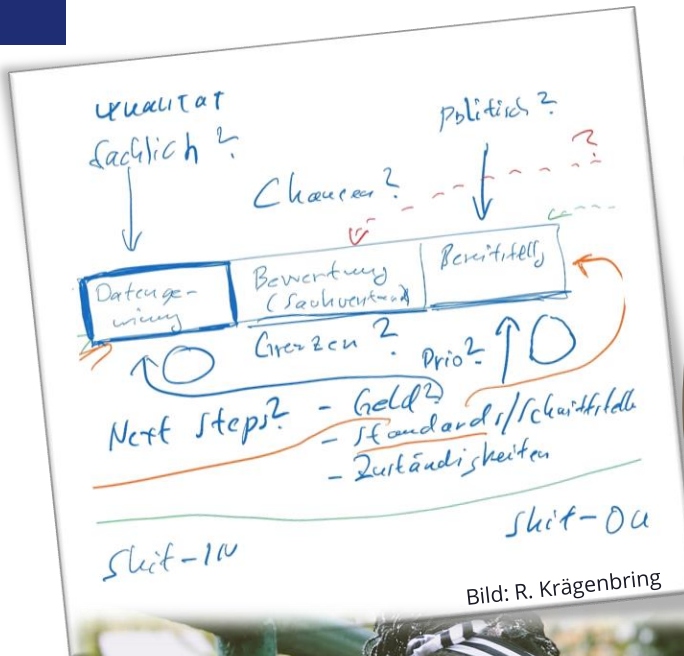 QUALITÄT
fachlich?
Politisch?
?
Chancen?
Datenge-
winung
Bewertung
(Sachverstand)
Bereitstellg
Grenzen?
Prio?
Next Steps?
- Geld?
- Standards/Schnittstelle
- Zuständigkeiten
Shit-IN
Shit-Ou
Bild: R. Krägenbring